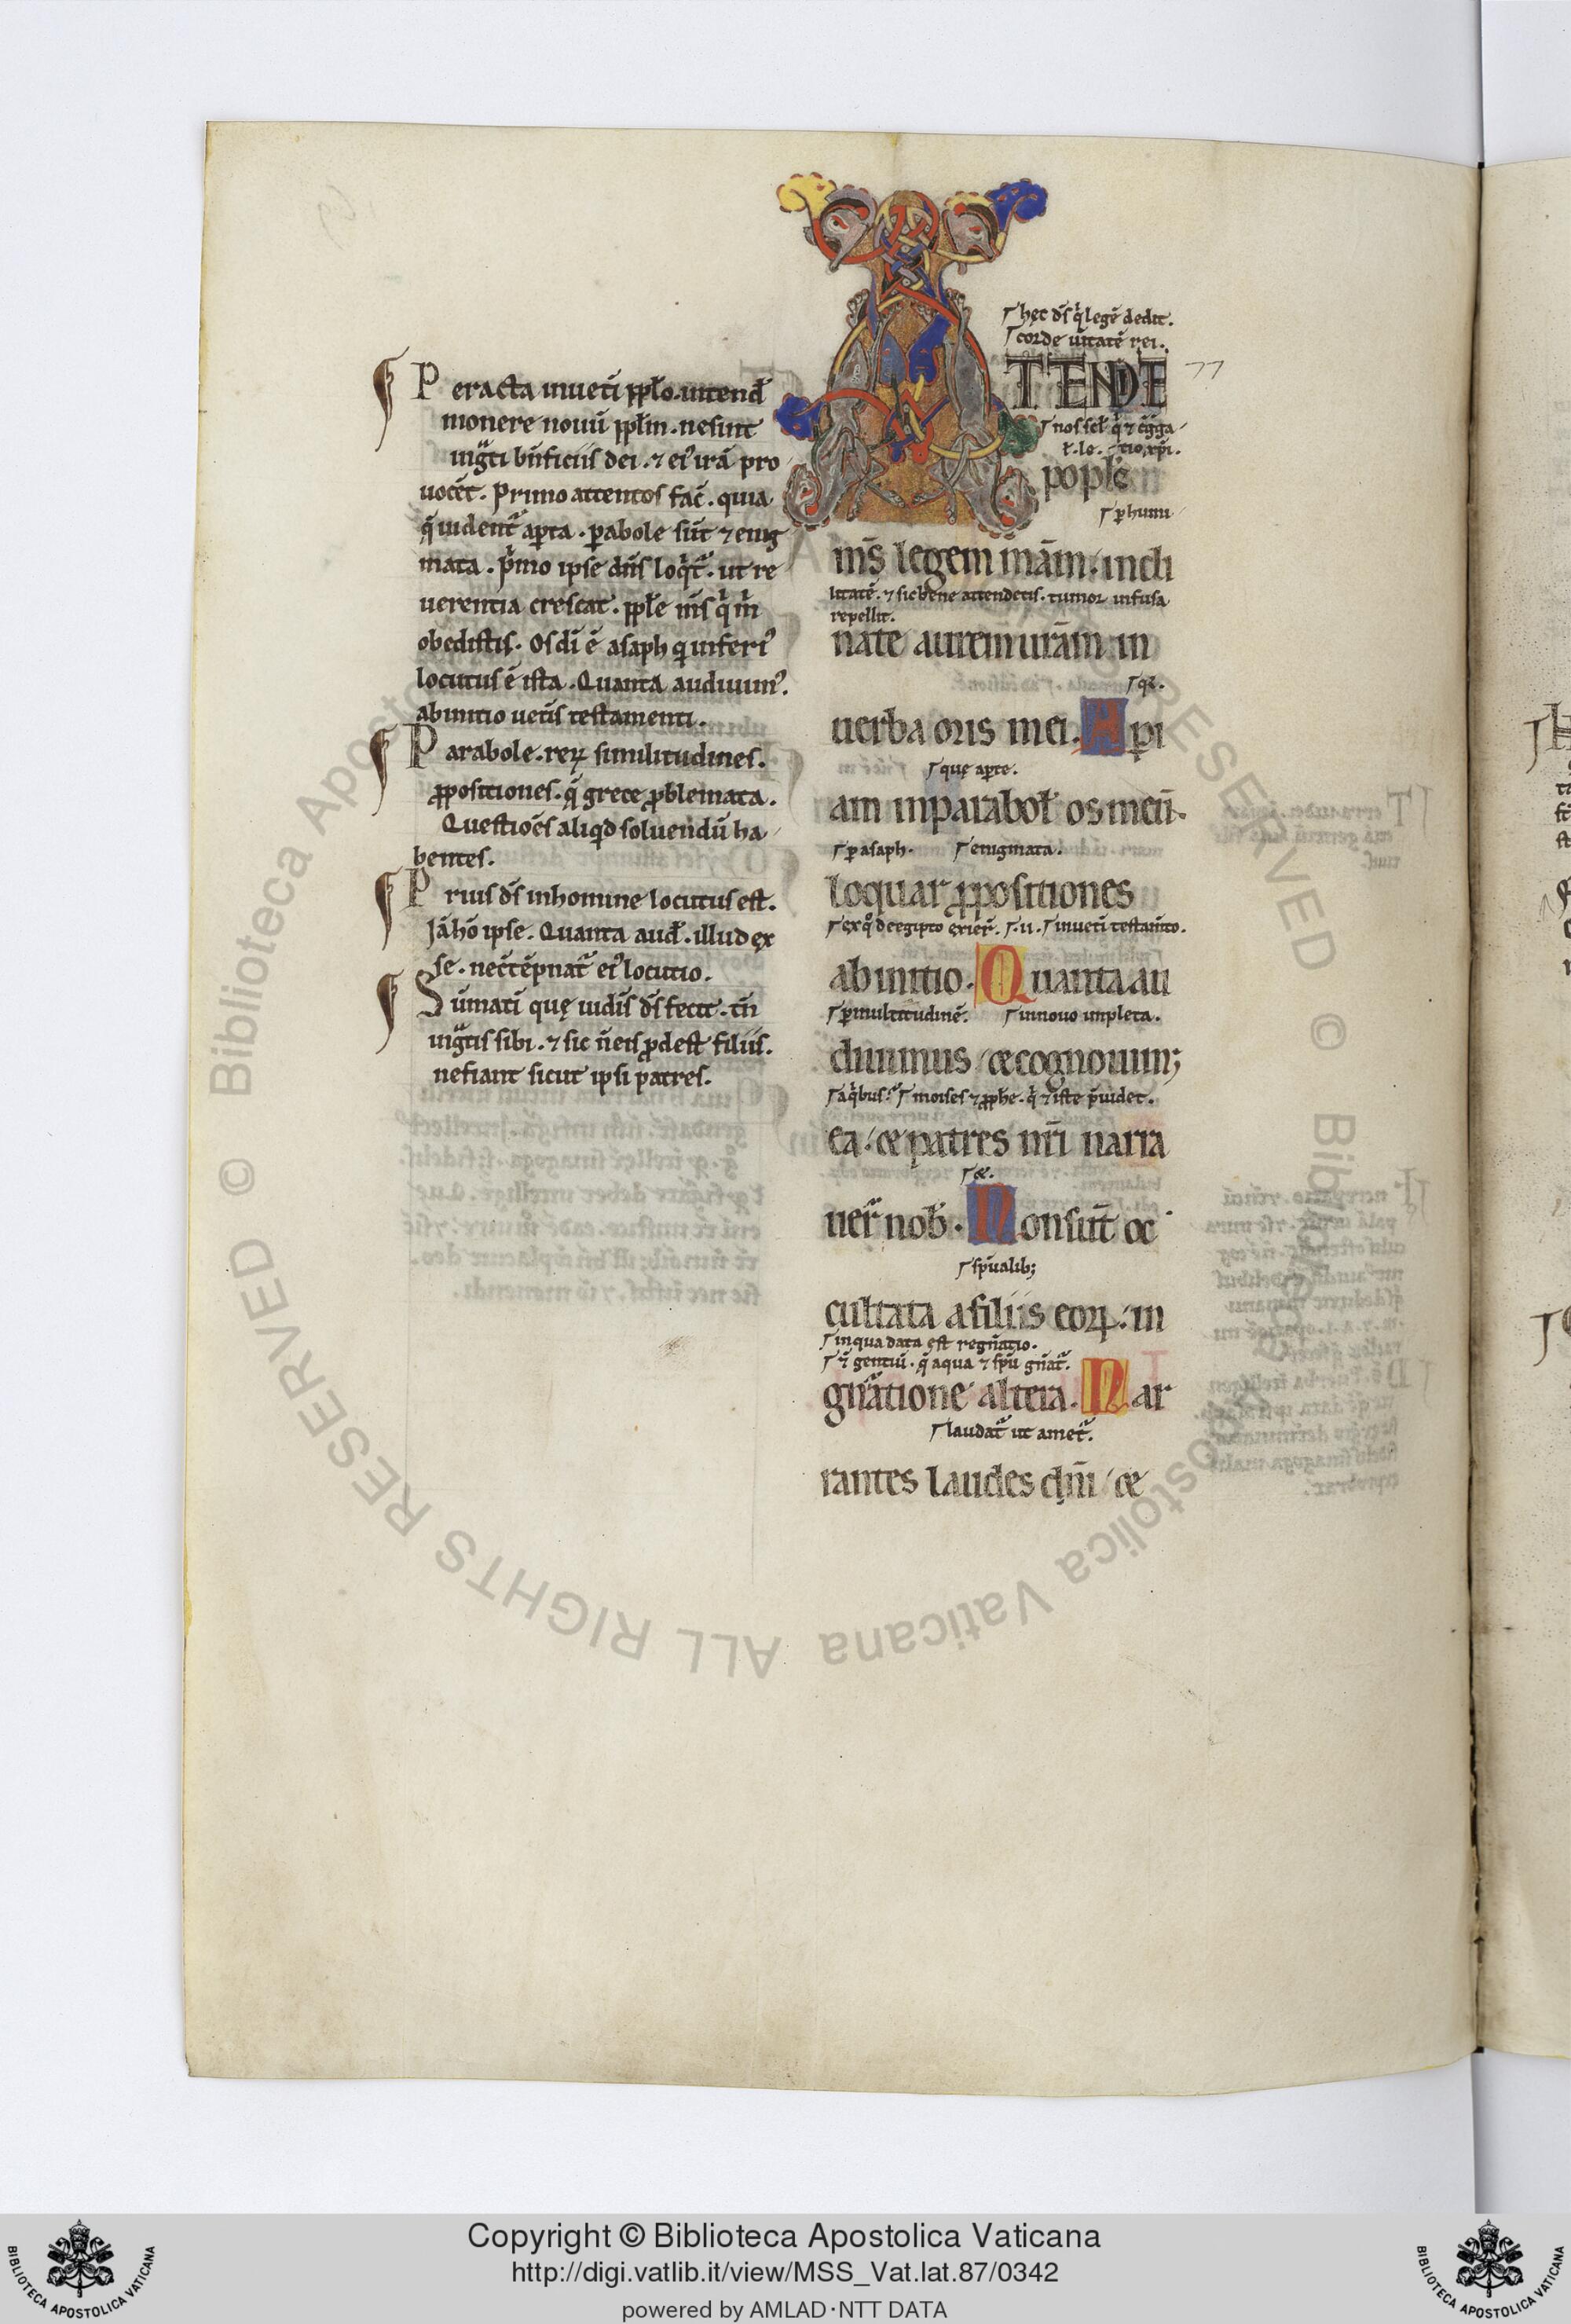 Peracta in ueti̅ ppło. intend̅
monere nouu̅ ppłm. ne sint
ingͣti bn̅ficiis dei. ⁊ ei᷒ ira̅ pro
uoce̅t. Primo attentos fac̅. quia
q̅ uident᷑ aꝑta. ꝑabole su̅t ⁊ enig
mata. pͥmo ipse dn̅s loqͥt᷑. ut re
uerentia crescat. pple m̅s qͥ m̅
obedistis. Os di̅ e̅ asaph q inferi᷒
locutus e̅ ista. Quanta audiuim᷒.
ab initio uet̅is testamenti.
Parabole. reꝝ similitudines.
ꝓpositiones. q̅ grece ꝓblemata.
Questio̅es aliqd soluendu̅ ha
bentes.
Prius ds̅ in homine locutus est.
Ja̅ ho̅ ipse. Quanta aud̅. illud ex
se. nec
locutio.
Su̅mati̅ quę iudi̅s ds̅ fecit. tn̅
ingͣtis sibi. ⁊ sic n̅ eis ꝓdest filiis.
ne fiant sicut ipsi patres.
hęc ds̅ qͥ lege̅ dedit.
corde ue̅itate̅ rei.
TENDE
77
pople
ꝑ humi
m̅s legem ma̅m. incli
litate̅. ⁊ sic bene attendetis. tumor infusa
repellit.
nate aurem ura̅m in
uerba oris mei. Aꝑi
quę aꝑte.
am in parabol̅ os meu̅.
ꝑ asaph. enigmata.
loquar ꝓpositiones
ex qͦ de egipto exier̅. in ueti̅ testam̅to.
ab initio. Quanta au
ꝑ multitudine̅. in nouo impleta.
diuimus ⁊ cognouim;
a qͥbus. moises ⁊ ꝓphe. qͥ ⁊ iste p̅uidet.
ea. ⁊ patres nr̅i narra
⁊.
uer̅ nob̅. Non sunt oc
sp̅ualib;
cultata a filiis eoꝝ. in
in qua data est regn̅atio.
gentiu̅. q̅ aqua ⁊ sp̅u gn̅at᷑.
gn̅atione altera. Nar
laudat᷑ ut amet᷑.
rantes laudes dn̅i ⁊
Copyright © Biblioteca Apostolica Vaticana
http://digi.vatlib.it/view/MSS_Vat.lat.87/0342
powered by AMLAD·NTT DATA
BIBLIOTECA APOSTOLICA VATICANA
BIBLIOTECA APOSTOLICA VATICANA
© Biblioteca Apostolica Vaticana ALL RIGHTS RESERVED